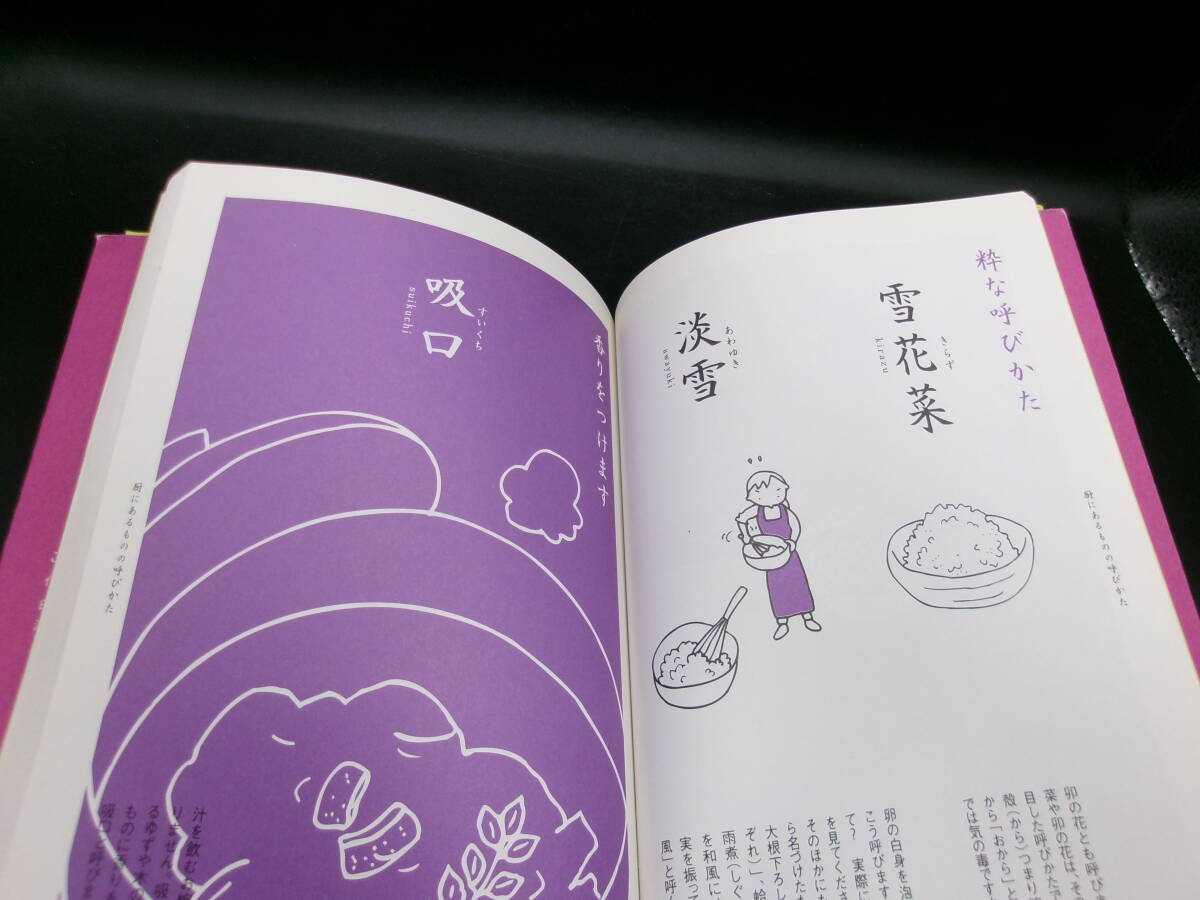 粋な呼びかた
雪花菜
きらず
kirazu
淡雪
あわゆき
awayuki
厨にあるものの呼びかた
卯の花とも呼びま
菜や卯の花は、その
目した呼びかたで
殻(から)つまりは
から「おから」と
では気の毒です
卵の白身を泡
こう呼びます
て? 実際に
を見てくださ
そのほかにも
ら名づけたも
大根下ろし
ぞれ)」、蛤
雨煮(しぐ
を和風に
実を振って
風」と呼
香りをつけます
吸口
すいくち
suikuchi
厨にあるものの呼びかた
汁を飲む
りません。吸
るゆずや木の
ものに香りを
吸口と呼びま